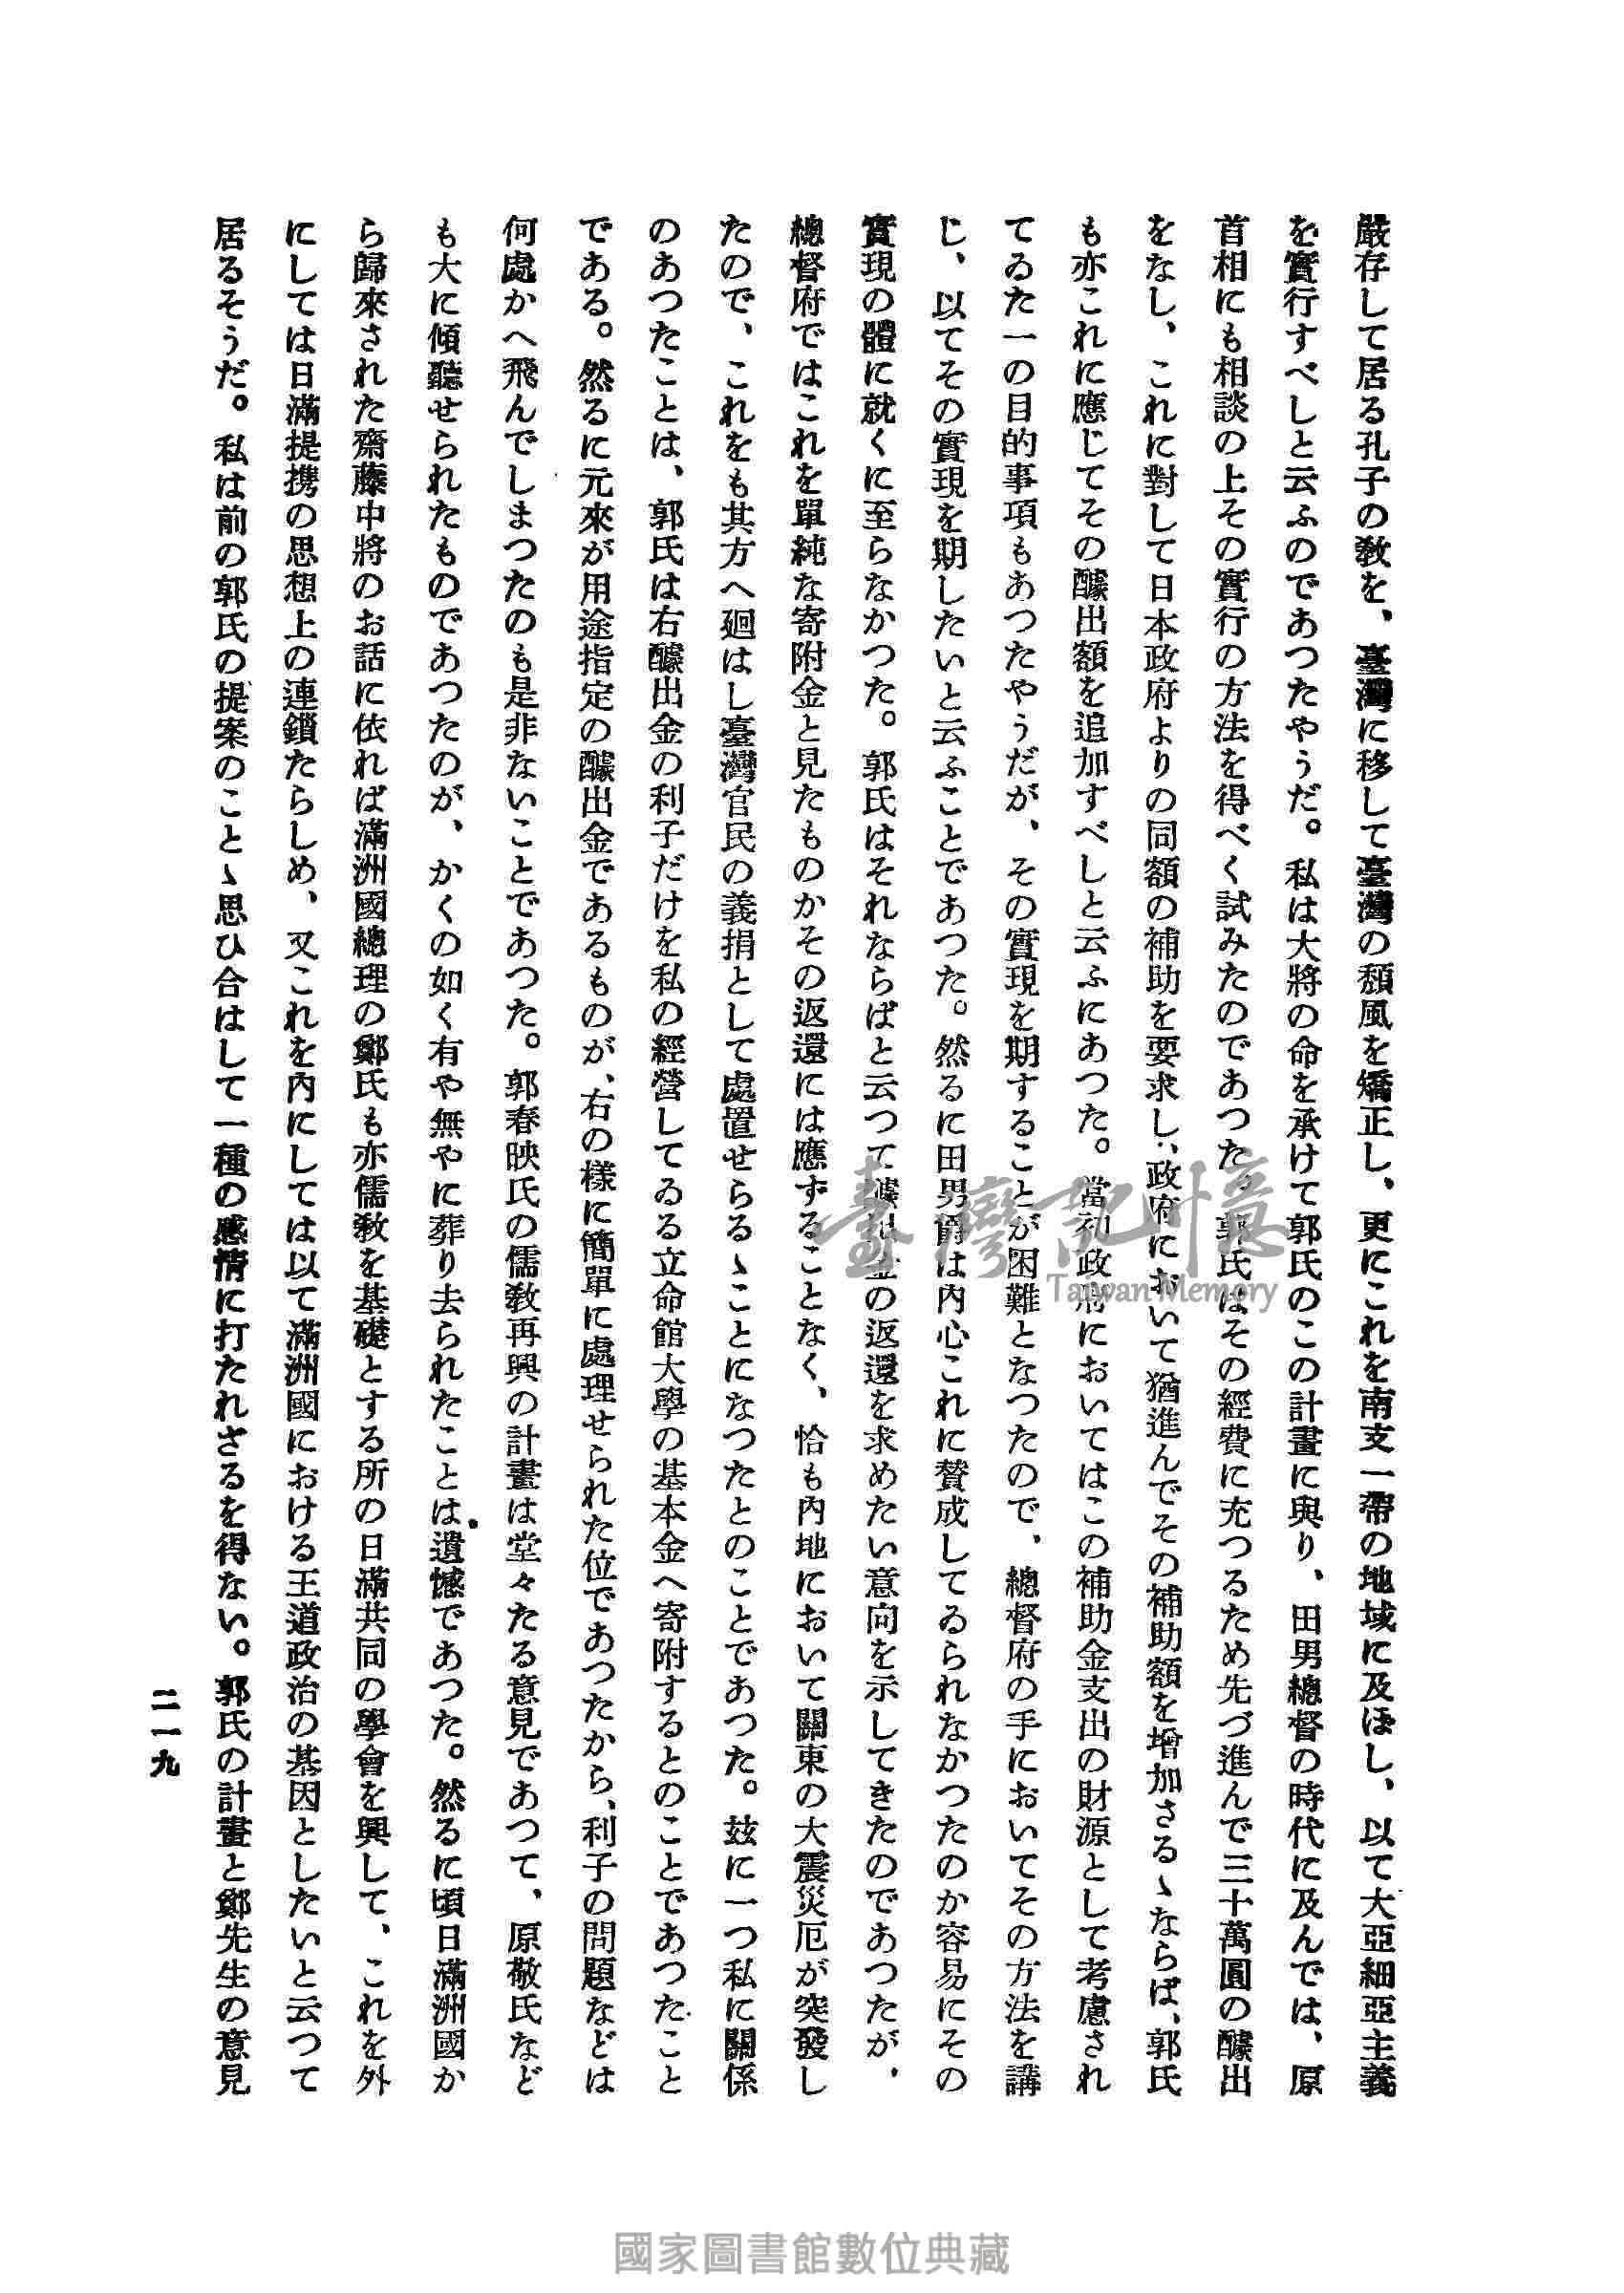 嚴存して居る孔子の敎を、臺灣に移して臺灣の頽風を矯正し、更にこれを南支一帶の地域に及ほし、以て大亞細亞主義
を實行すべしと云ふのであつたやうだ。私は大將の命を承けて郭氏のこの計畫に與り、田男總督の時代に及んでは、原
首相にも相談の上その實行の方法を得べく試みたのであつた。郭氏はその經費に充つるため先づ進んで三十萬圓の醵出
をなし、これに對して日本政府よりの同額の補助を要求し、政府において猶進んでその補助額を增加さるゝならば、郭氏
も亦これに應じてその醵出額を追加すべしと云ふにあつた。當初政府においてはこの補助金支出の財源として考慮され
てゐた一の目的事項もあつたやうだが、その實現を期することが困難となつたので、總督府の手においてその方法を講
じ、以てその實現を期したいと云ふことであつた。然るに田男爵は內心これに贊成してゐられなかつたのか容易にその
實現の體に就くに至らなかつた。郭氏はそれならばと云つて醵出金の返還を求めたい意向を示してきたのであつたが、
總督府ではこれを單純な寄附金と見たものかその返還には應ずることなく、恰も內地において關東の大震災厄が突發し
たので、これをも其方へ廻はし臺灣官民の義捐として處置せらるゝことになつたとのことであつた。玆に一つ私に關係
のあつたことは、郭氏は右醵出金の利子だけを私の經營してゐる立命館大學の基本金へ寄附するとのことであつたこと
である。然るに元來が用途指定の醵出金であるものが、右の樣に簡單に處理せられた位であつたから、利子の問題などは
何處かへ飛んでしまつたのも是非ないことであつた。郭春映氏の儒敎再興の計畫は堂々たる意見であつて、原敬氏など
も大に傾聽せられたものであつたのが、かくの如く有や無やに葬り去られたことは遺憾であつた。然るに頃日滿洲國か
ら歸來された齋藤中將のお話に依れば滿洲國總理の鄭氏も亦儒敎を基礎とする所の日滿共同の學會を興して、これを外
にしては日滿提携の思想上の連鎖たらしめ、又これを內にしては以て滿洲國における王道政治の基因としたいと云つて
居るそうだ。私は前の郭氏の提案のことゝ思ひ合はして一種の感情に打たれざるを得ない。郭氏の計畫と鄭先生の意見
二一九
臺灣記憶
Taiwan Memory
國家圖書館數位典藏